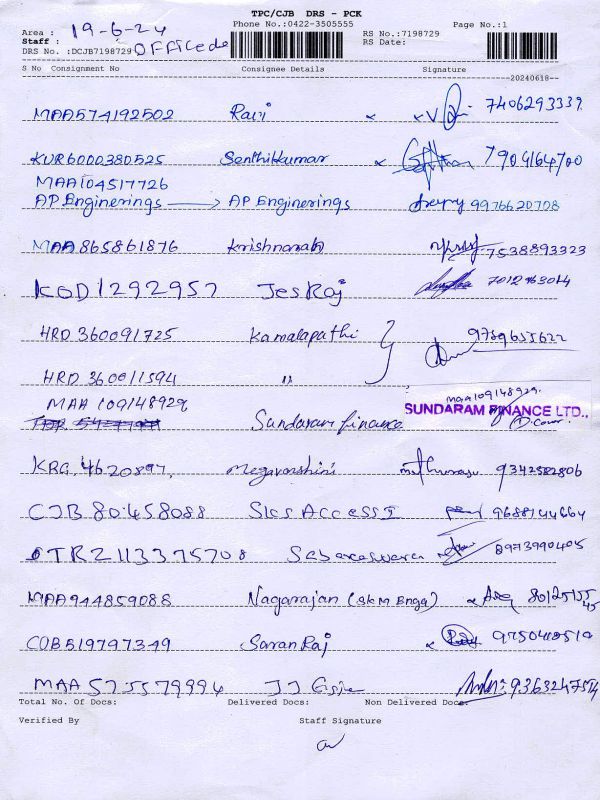 TPC/CJB DRS - PCK
Phone No.:0422-3505555 Page No.:1
Area : 19-6-24 RS No.:7198729
Staff : Office de RS Date:
DRS No. :DCJB7198729
S No Consignment No Consignee Details Signature
20240618
MAA574192502 Ravi x x 7406293339
KUR6000380525 Senthilkumar x 7904164700
MAA104517726
AP Enginerings → AP Enginerings 9976620708
MAA865861876 Krishnarah 7538893323
KOD1292957 JesRaj
HRD 360091725 Kamalapathi 9789655622
HRD 360011594 "
MAA 109148929 MAA109148929.
Sundaram finance SUNDARAM FINANCE LTD.,
KRG.4620897. Megavarshini 9342582806
CJB 80458088 Slcs Access I 9688144664
OTR2113375708 Sabareswara 8973990405
MAA944859088 Nagarajan (SKM Engg) x 80125155 45
COB519797349 SaranRaj x 9750418519
MAA 575579994 JJ 9363247514
Total No. Of Docs: Delivered Docs: Non Delivered Docs:
Verified By Staff Signature